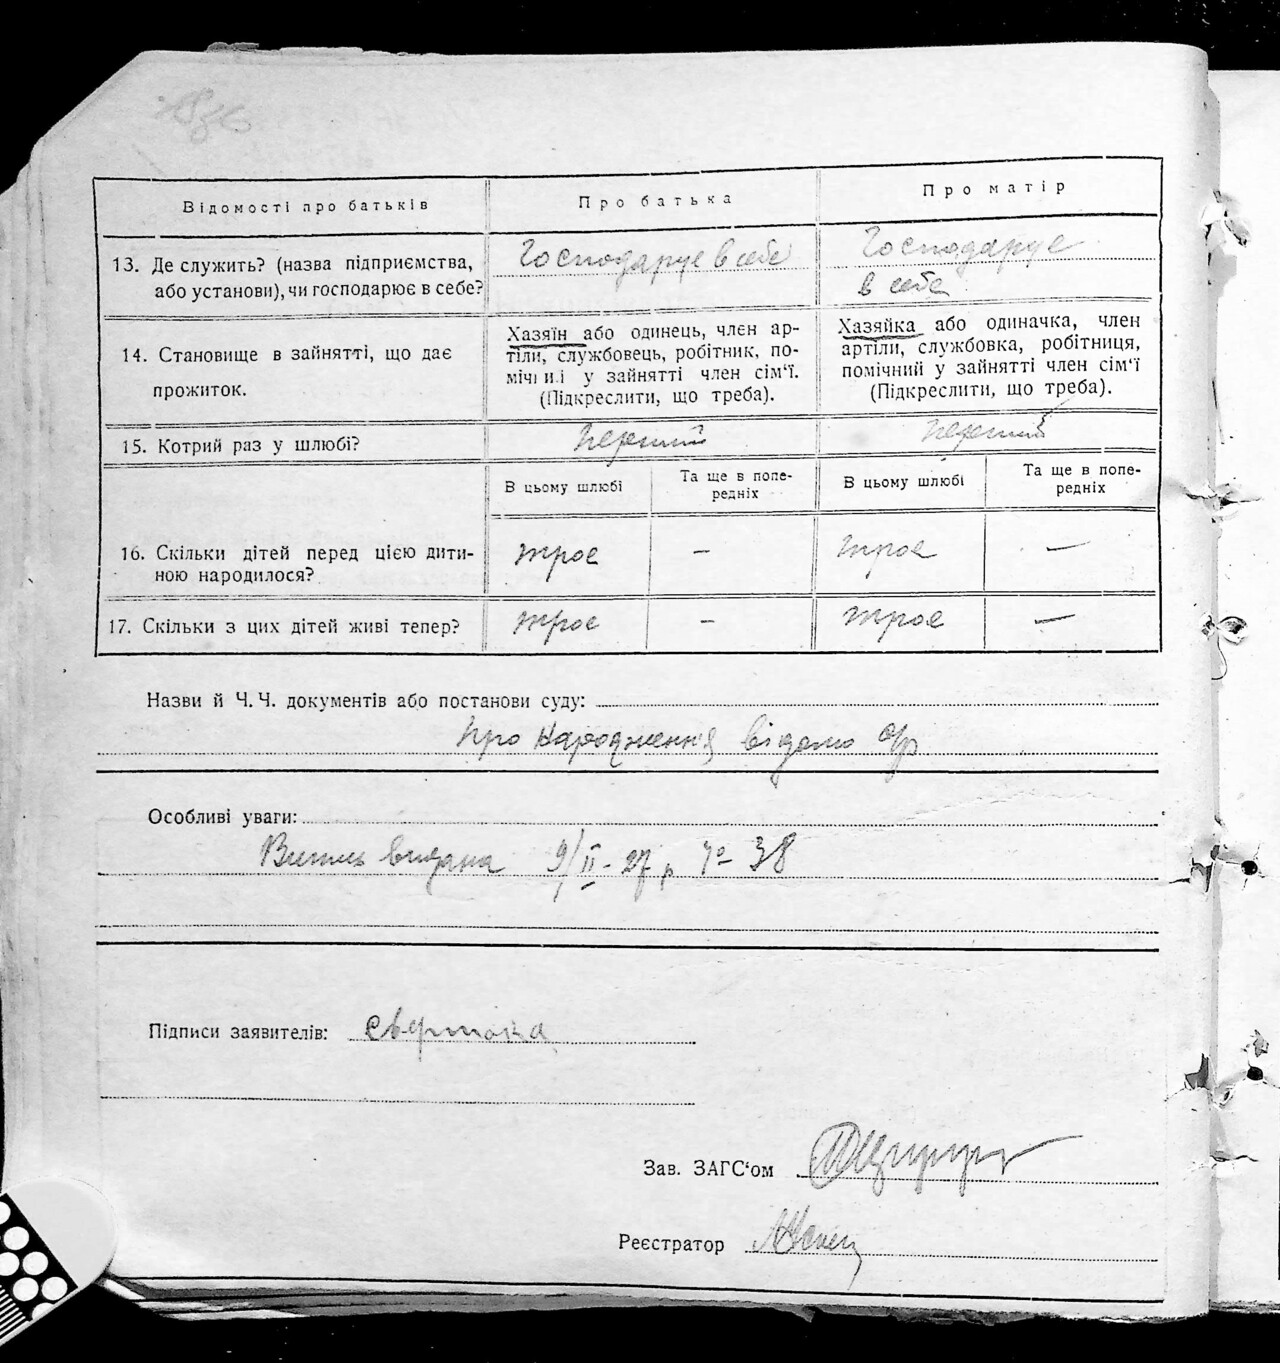 Відомості про батьків
Про батька
Про матір
13. Де служить? (назва підприємства,
або установи), чи господарює в себе?
Господарує в себе
Господарує
в себе
14. Становище в зайнятті, що дає
прожиток.
Хазяїн або одинець, член ар-
тіли, службовець, робітник, по-
мічниі у зайнятті член сім'ї.
(Підкреслити, що треба).
Хазяйка або одиначка, член
артіли, службовка, робітниця,
помічний у зайнятті член сім'ї
(Підкреслити, що треба).
15. Котрий раз у шлюбі?
перший
перший
В цьому шлюбі
Та ще в попе-
редніх
В цьому шлюбі
Та ще в попе-
редніх
16. Скільки дітей перед цією дити-
ною народилося?
троє
—
троє
—
17. Скільки з цих дітей живі тепер?
троє
—
троє
—
Назви й Ч. Ч. документів або постанови суду:
про народження відомо
Особливі уваги:
Випис видана 9/II-27 р № 38
Підписи заявителів:
Зав. ЗАГС'ом
Реєстратор